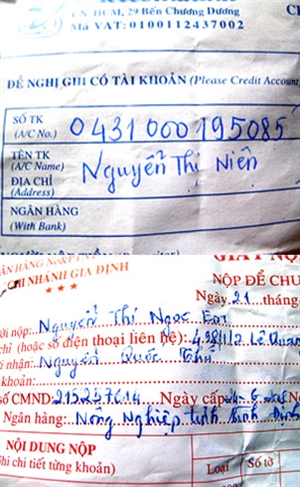 CN HCM, 29 Bến Chương Dương
Mã VAT: 0100112437002
ĐỀ NGHỊ GHI CÓ TÀI KHOẢN (Please Credit Account
SỐ TK
(A/C No.) 0431000195085
TÊN TK
(A/C Name) Nguyễn Thị Niên
ĐỊA CHỈ
(Address)
NGÂN HÀNG
(With Bank)
CHI NHÁNH GIA ĐỊNH
NỘP ĐỂ CHU
Ngày 21 tháng
nộp: Nguyễn Thị Ngọc
chỉ (hoặc số điện thoại liên hệ): Lê Quan
nhận: Nguyễn Quốc
khoản:
số CMND: Ngày cấp
Ngân hàng: Nông Nghiệp tỉnh Bình Định
NỘI DUNG NỘP
Ghi chi tiết từng khoản)
Loại
Số tờ